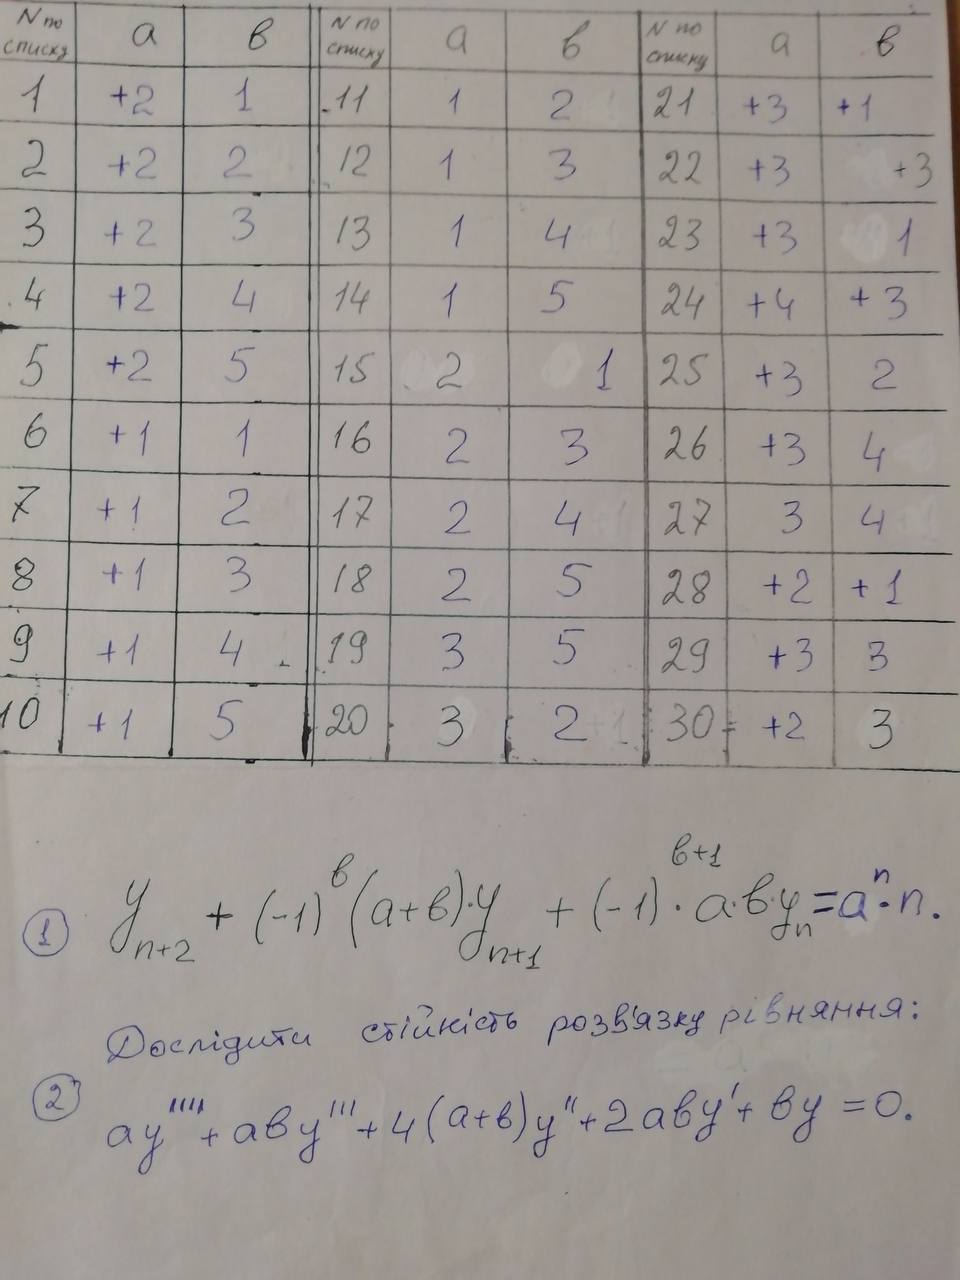 N по списку а в N по списку а в N по списку а в
1 +2 1 11 1 2 21 +3 +1
2 +2 2 12 1 3 22 +3 +3
3 +2 3 13 1 4 23 +3 1
4 +2 4 14 1 5 24 +4 +3
5 +2 5 15 2 1 25 +3 2
6 +1 1 16 2 3 26 +3 4
7 +1 2 17 2 4 27 3 4
8 +1 3 18 2 5 28 +2 +1
9 +1 4 19 3 5 29 +3 3
10 +1 5 20 3 2 30 +2 3
① y_{n+2} + (-1)^в (а+в)·y_{n+1} + (-1)^{в+1}·а·в·y_n = а^n·n.
Дослідити стійкість розв'язку рівняння:
② ay'''' + aвy''' + 4(a+в)y'' + 2aвy' + вy = 0.